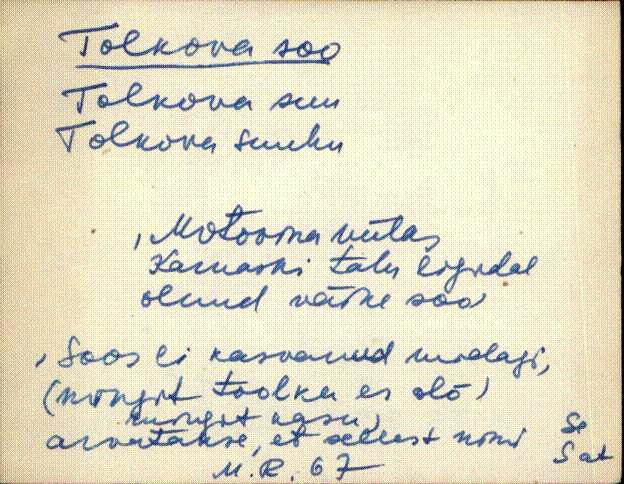 Tolkova soo
Tolkova suu
Tolkova suuhu
, Motovina vütas,
talu ligidal
olnud väike soo,
, Soos ei kasvanud midagi,
(mõngit toolka es olõ)
mingit kasu,
arvatakse, et sellest nimi
Se
Sat
M. R. 67